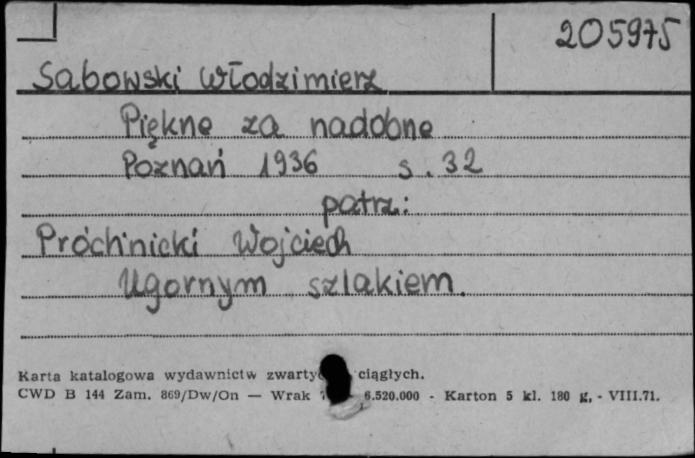 205975
Sabowski Włodzimierz
Piękne za nadobne
Poznań 1936 s. 32
patrz:
Próchnicki Wojciech
Ugornym szlakiem.
Karta katalogowa wydawnictw ciągłych.
CWD B 144 Zam. 869/Dw/On — Wrak 6.520.000 - Karton 5 kl. 180 g, - VIII.71.